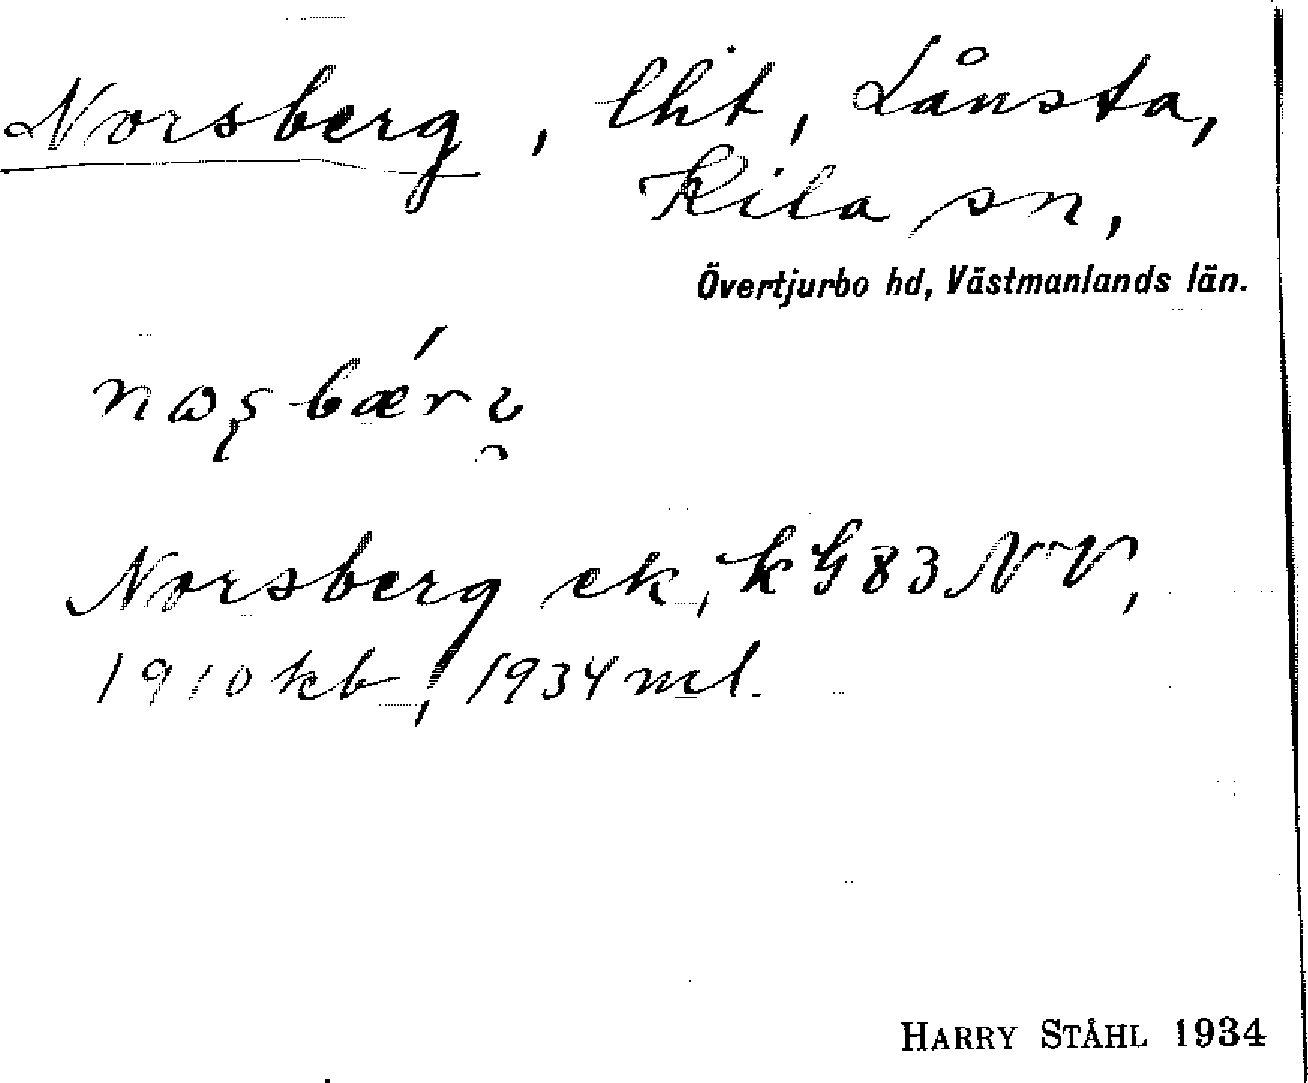 Norsberg, lht, Lånsta,
Kila sn,
Övertjurbo hd, Västmanlands län.
Norsberg ek, k G83 NV,
1910 kb, 1934 ml.
HARRY STÅHL 1934